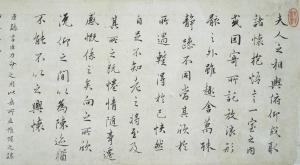 夫人之相與俯仰或取
諸懷抱悟言一室之内
或因寄所託放浪形
骸之外雖趣舍萬殊
靜躁不同當其欣於
所遇暫得於己快然
自足不知老之將至及
其所之既惓情隨事遷
感慨係之矣向之所欣
俛仰之間以為陳迹猶
不能不以之興懷